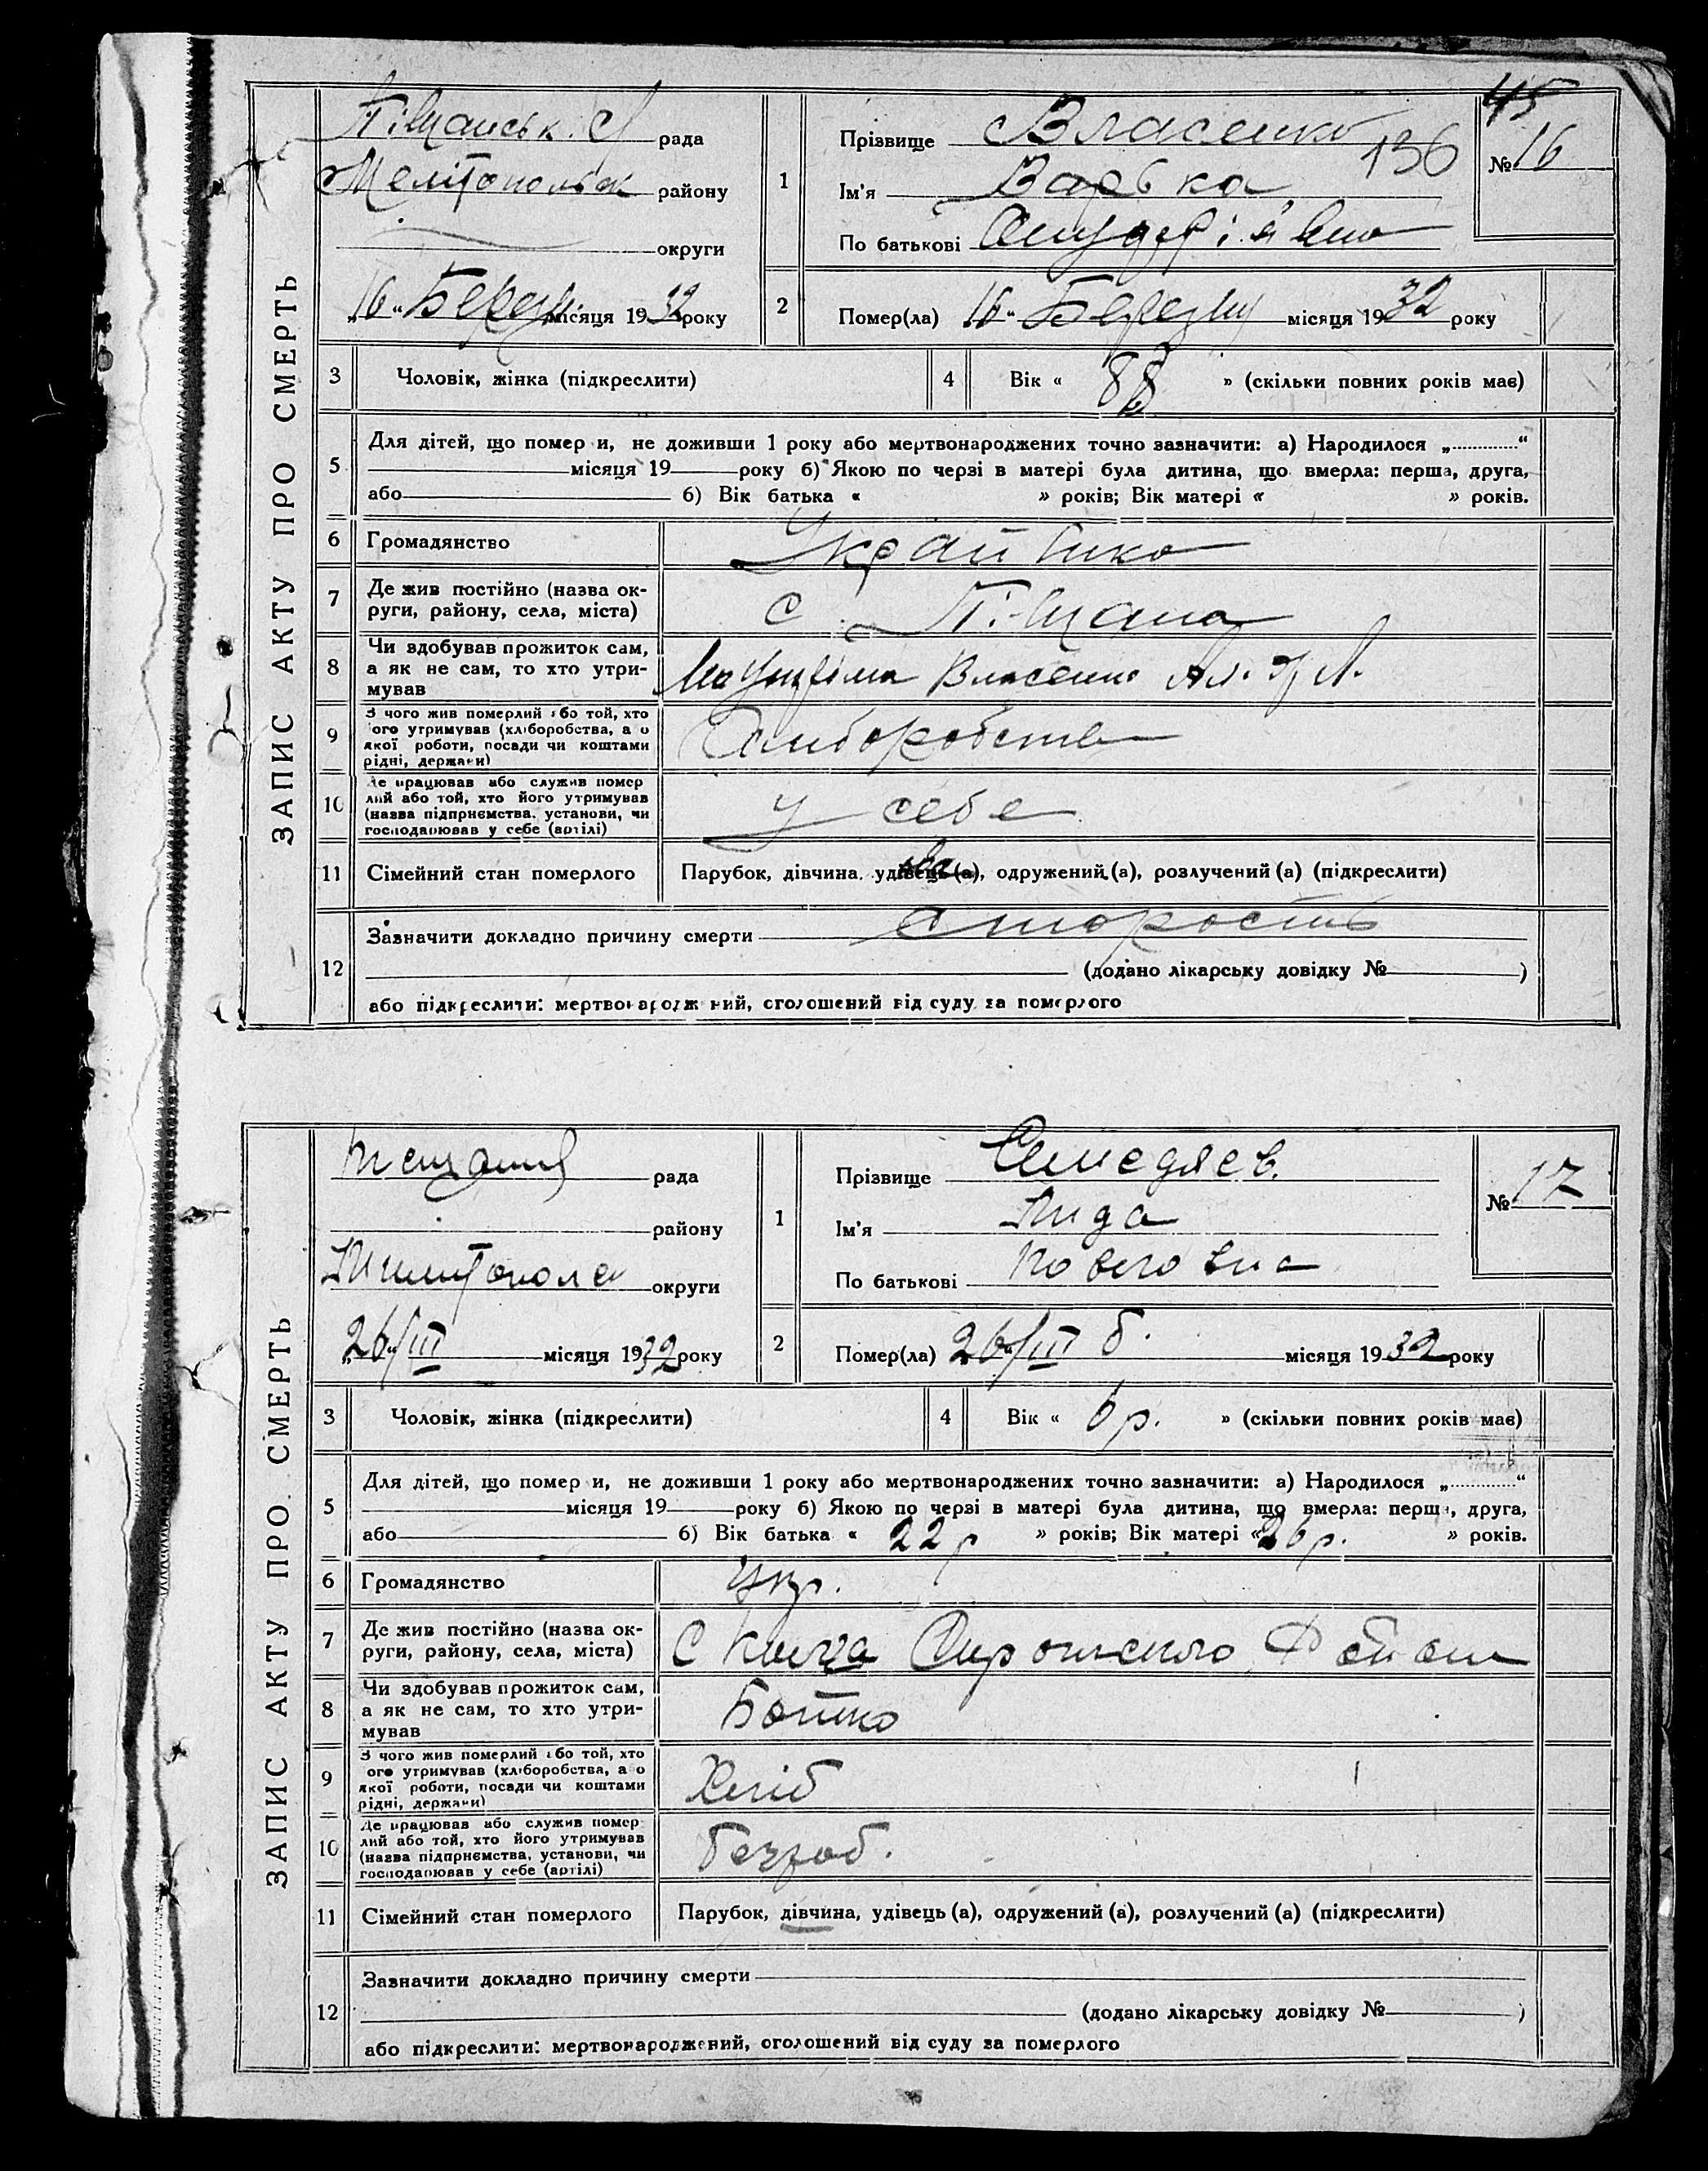 45
ЗАПИС АКТУ ПРО СМЕРТЬ
Піщанськ. С рада
Мелітопольск району
округи
„16“ Березн місяця 1932 року
1
Прізвище Власенко
136
Ім'я Варька
По батькові
№ 16
2 Помер(ла) 16“ Березня місяця 1932 року
3 Чоловік, жінка (підкреслити)
4 Вік « 88 » (скільки повних років має)
5 Для дітей, що помер и, не доживши 1 року або мертвонароджених точно зазначити: а) Народилося „ “
місяця 19 року б) Якою по черзі в матері була дитина, що вмерла: перша, друга,
або б) Вік батька « » років; Вік матері « » років.
6 Громадянство Украйінка
7 Де жив постійно (назва ок-
руги, району, села, міста) С. Піщана
8 Чи здобував прожиток сам,
а як не сам, то хто утри-
мував Власенко
9 З чого жив померлий або той, хто
ого утримував (хліборобства, а о
якої роботи, посади чи коштами
рідні, держави)
10 Де працював або служив помер
лий або той, хто його утримував
(назва підприємства, установи, чи
господарював у себе (артілі) у себе
11 Сімейний стан померлого Парубок, дівчина, удівець (а), одружений (а), розлучений (а) (підкреслити)
12 Зазначити докладно причину смерти старость
(додано лікарську довідку № )
або підкреслити: мертвонароджений, оголошений від суду за померлого
ЗАПИС АКТУ ПРО СМЕРТЬ
рада
району
округи
„26/III місяця 1932 року
1
Прізвище
Ім'я Лида
По батькові
№ 17
2 Помер(ла) 26/III б. місяця 1932 року
3 Чоловік, жінка (підкреслити)
4 Вік « 6 р. » (скільки повних років має)
5 Для дітей, що помер и, не доживши 1 року або мертвонароджених точно зазначити: а) Народилося „ “
місяця 19 року б) Якою по черзі в матері була дитина, що вмерла: перша, друга,
або б) Вік батька « 22 р » років; Вік матері « 26 р. » років.
6 Громадянство Укр.
7 Де жив постійно (назва ок-
руги, району, села, міста) С
8 Чи здобував прожиток сам,
а як не сам, то хто утри-
мував Батько
9 З чого жив померлий або той, хто
ого утримував (хліборобства, а о
якої роботи, посади чи коштами
рідні, держави) Хліб
10 Де працював або служив помер
лий або той, хто його утримував
(назва підприємства, установи, чи
господарював у себе (артілі) безроб.
11 Сімейний стан померлого Парубок, дівчина, удівець (а), одружений (а), розлучений (а) (підкреслити)
12 Зазначити докладно причину смерти
(додано лікарську довідку № )
або підкреслити: мертвонароджений, оголошений від суду за померлого